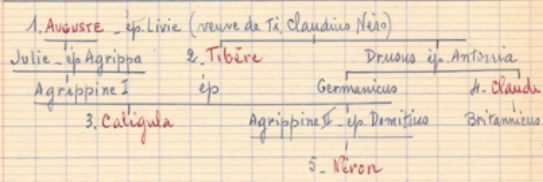 1. AUGUSTE - ép. Livie (veuve de Ti. Claudius Néro)
Julie - ép Agrippa 2. Tibère Drusus ép. Antonia
Agrippine I ép Germanicus 4. Claude
3. Caligula Agrippine II - ép. Domitius Britannicus
5 - Néron